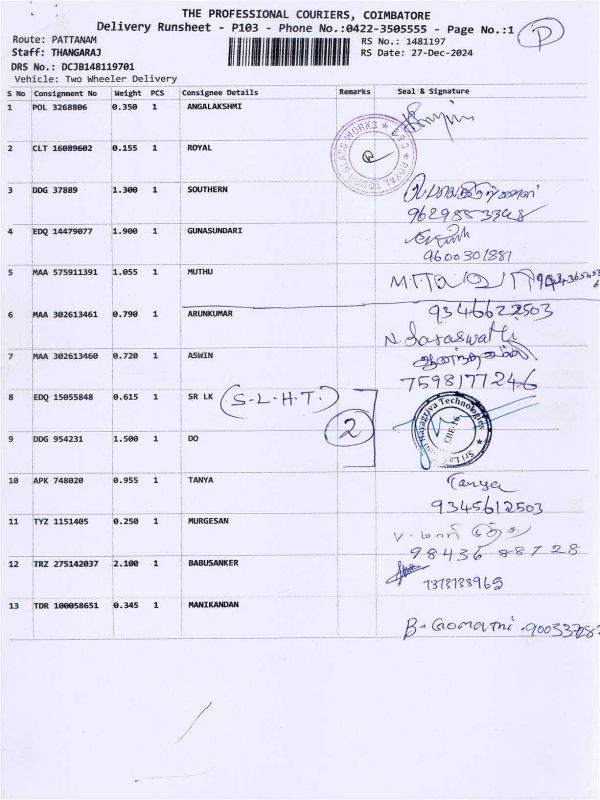 THE PROFESSIONAL COURIERS, COIMBATORE
Delivery Runsheet - P103 - Phone No.:0422-3505555 - Page No.:1
P
Route: PATTANAM
RS No.: 1481197
Staff: THANGARAJ
RS Date: 27-Dec-2024
DRS No.: DCJB148119701
Vehicle: Two Wheeler Delivery
S No Consignment No Weight PCS Consignee Details Remarks Seal & Signature
1 POL 3268806 0.350 1 ANGALAKSHMI
2 CLT 16089602 0.155 1 ROYAL
ROYAL TOUGH GLASS WORKS
3 DDG 37889 1.300 1 SOUTHERN
4 EDQ 14479077 1.900 1 GUNASUNDARI
9600301881
5 MAA 575911391 1.055 1 MUTHU
6 MAA 302613461 0.790 1 ARUNKUMAR 9346622503
N. Saraswathi
7 MAA 302613460 0.720 1 ASWIN
7598177246
8 EDQ 15055848 0.615 1 SR LK (S-L-H-T.)
2
9 DDG 954231 1.500 1 DO
Hayagriva Technologies
CBE-16
10 APK 748020 0.955 1 TANYA Tanya
9345612503
11 TYZ 1151405 0.250 1 MURGESAN
98436 88728
12 TRZ 275142037 2.100 1 BABUSANKER
7373188965
13 TDR 100058651 0.345 1 MANIKANDAN
B. Gomathi